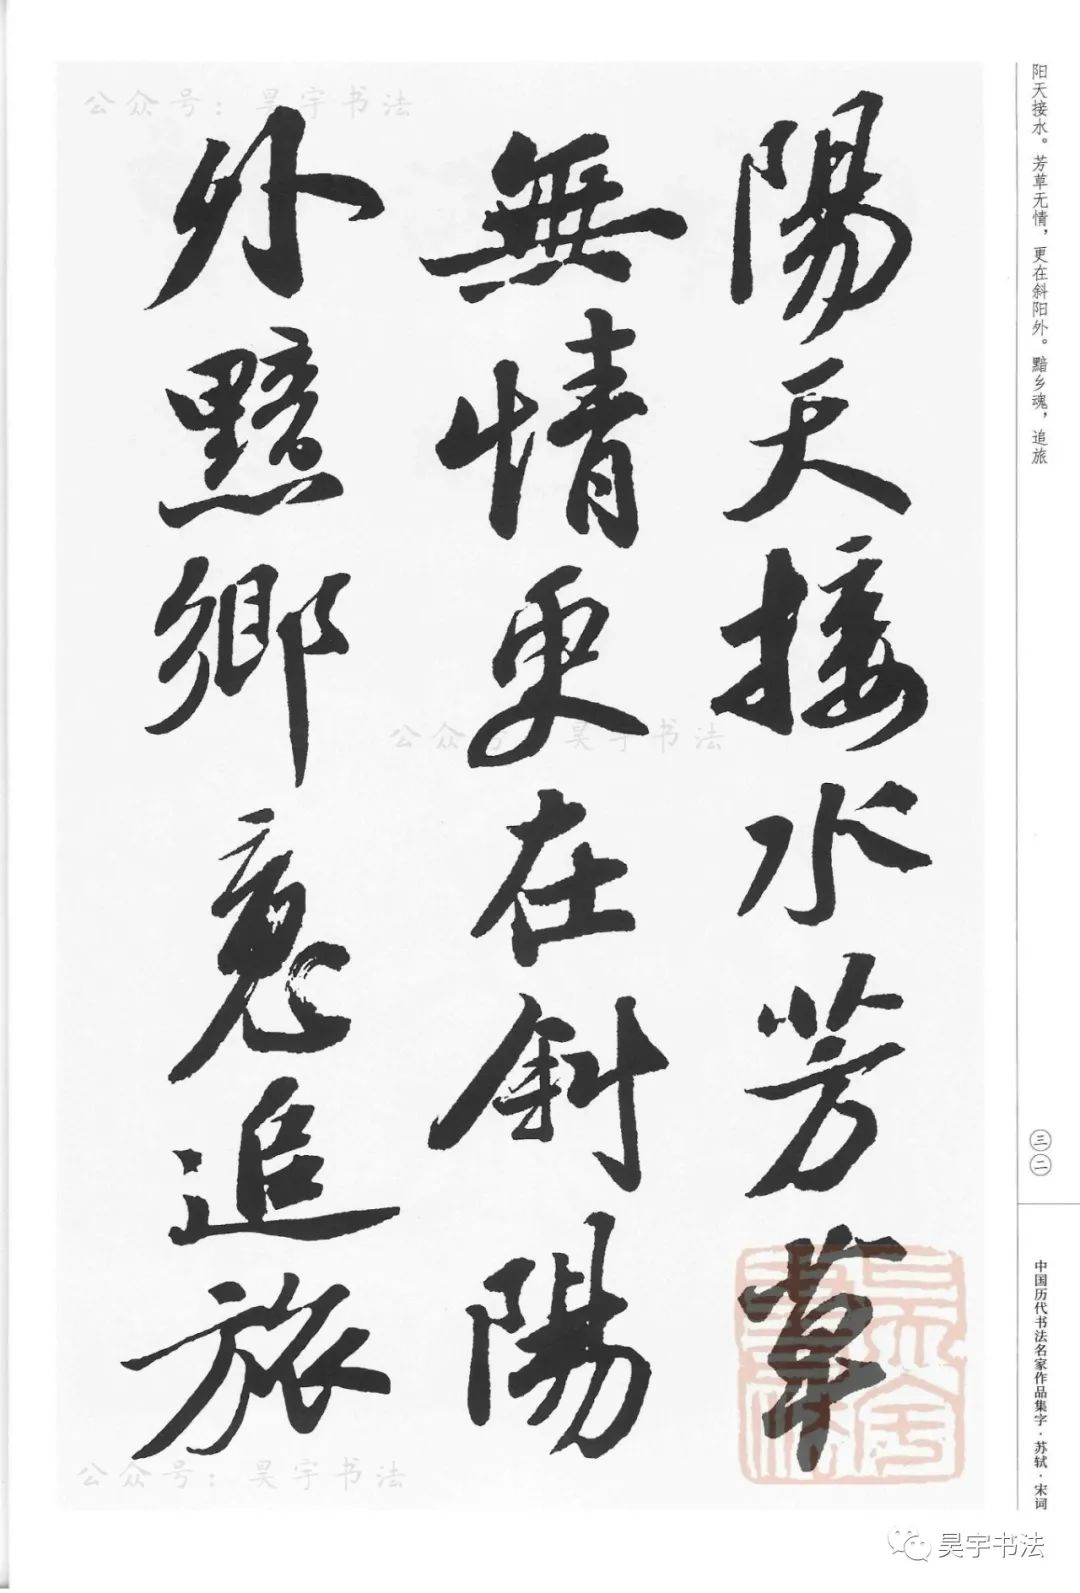 陽天接水芳草
無情更在斜陽
外黯鄉魂追旅
阳天接水。芳草无情，更在斜阳外。黯乡魂，追旅
三二
中国历代书法名家作品集字·苏轼·宋词
公众号：昊宇书法
公众号：昊宇书法
公众号：昊宇书法
昊宇書法
昊宇书法